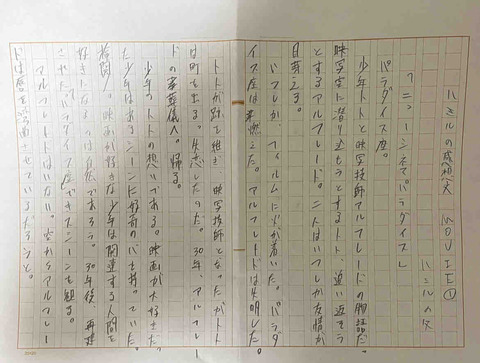 ハミルの感想文 MOVIE①
ハミルの父
「ニューシネマパラダイス」
パラダイス座。
少年トトと映写技師アルフレードの物語だ。
映写室に潜り込もうとするトト、追い返そう
とするアルフレード。二人はいつしか友情が
目芽える。
ハプしか、フィルムに火が着いた。パラダ
イス座は燃えた。アルフレードは失明した。
トトが跡を継ぎ、映写技師となった。だがトト
は町を出る。失恋したのだ。30年、アルフレー
ドの葬儀へ。帰る。
少年のトトの想いである。映画が大好きだ
った少年はあるシーンに好奇のバを持っていた。
検閲。映画が好きな少年は関連する人間を
好きになるのは自然であろう。30年後、再建
されたパラダイス座でキスシーンを観る。
アルフレードはいない。空からアルフレー
ドは